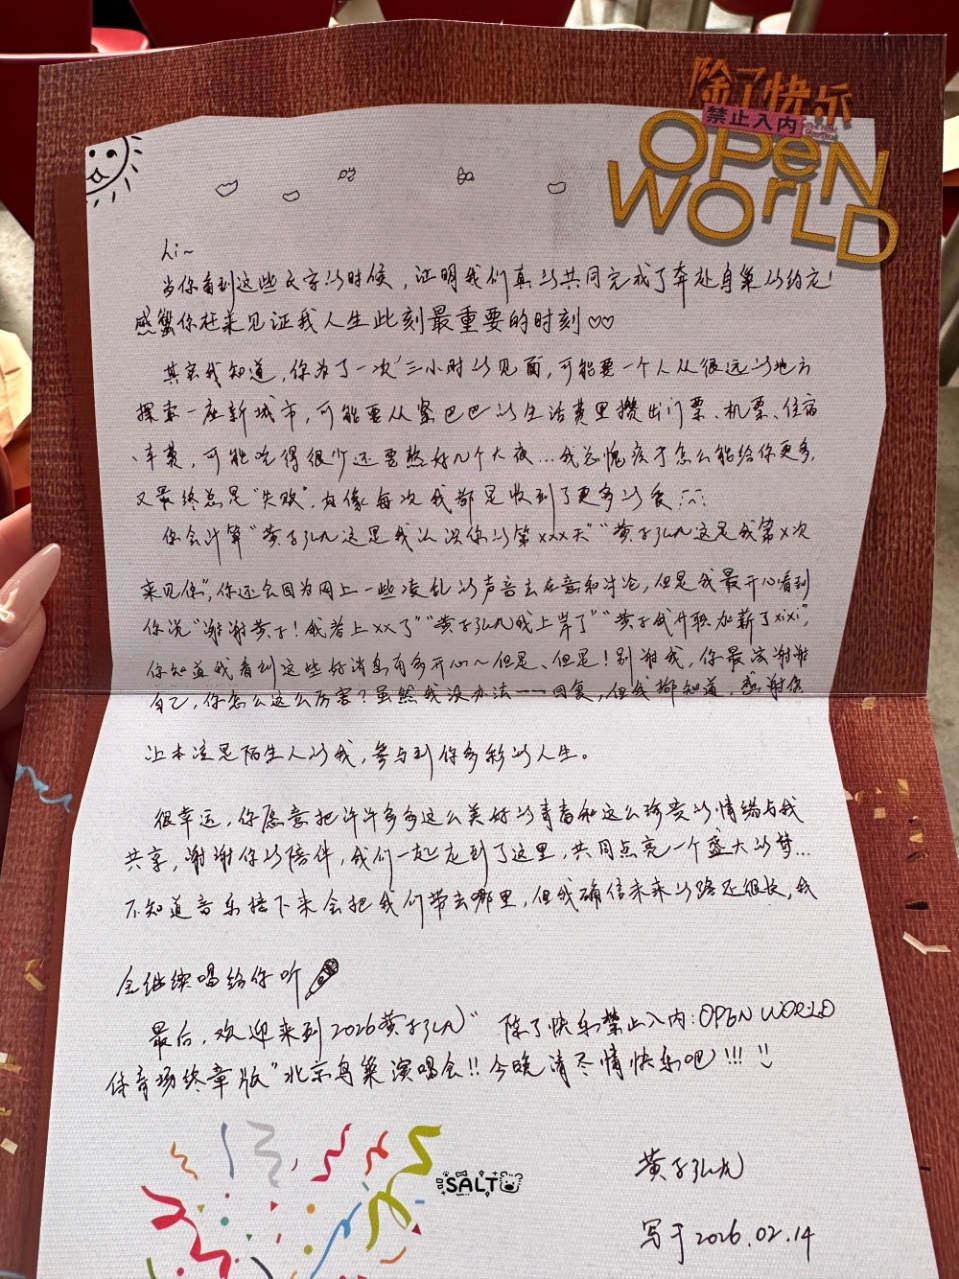 除了快乐
禁止入内
OPeN
WOrLD
hi~
当你看到这些文字的时候，证明我们真的共同完成了奔赴鸟巢的约定！
感蟹你赶来见证我人生此刻最重要的时刻♡♡
其实我知道，你为了一次'三小时的见面，可能要一个人从很远的地方
探索一座新城市，可能要从紧巴巴的生活费里攒出门票、机票、住宿
、车费，可能吃得很少还要熬好几个大夜…我总愧疚才怎么能给你更多，
又最终总是"失败"，好像每次我都是收到了更多的爱
你会计算"黄子弘凡这是我认识你的第xxx天""黄子弘凡这是我第x次
来见你"，你还会因为网上一些凌乱的声音去在意和讨论，但是我最开心看到
你说"谢谢黄子！我考上xx了""黄子弘凡我上岸了""黄子我升职加薪了xixi"，
你知道我看到这些好消息有多开心～但是、但是！别谢我，你最该谢谢
自己，你怎么这么厉害？虽然我没办法一一回复，但我都知道，感谢你
让本该是陌生人的我，参与到你多彩的人生。
很幸运，你愿意把许许多多这么美好的青春和这么珍贵的情绪与我
共享，谢谢你的陪伴，我们一起走到了这里，共同点亮一个盛大的梦…
不知道音乐接下来会把我们带去哪里，但我确信未来的路还很长，我
会继续唱给你听
最后，欢迎来到2026黄子弘凡"除了快乐禁止入内：OPEN WORLD
体育场终章版"北京鸟巢演唱会！！今晚请尽情快乐吧！！！
SALT
黄子弘凡
写于2026.02.14